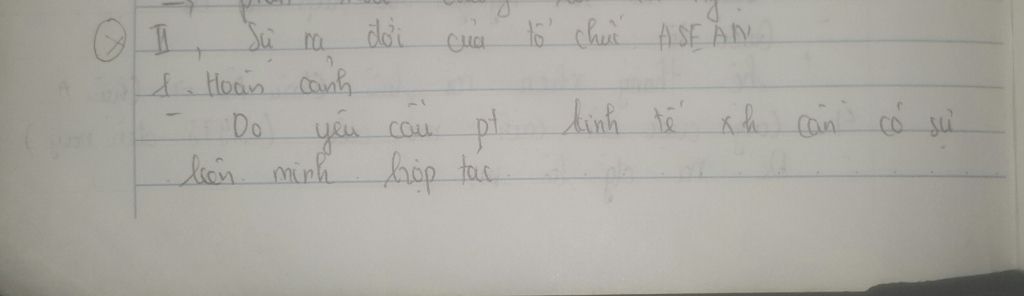 II, Sự ra đời của tổ chức ASEAN
1. Hoàn cảnh
- Do yêu cầu pt kinh tế xh cần có sự
liên minh hợp tác